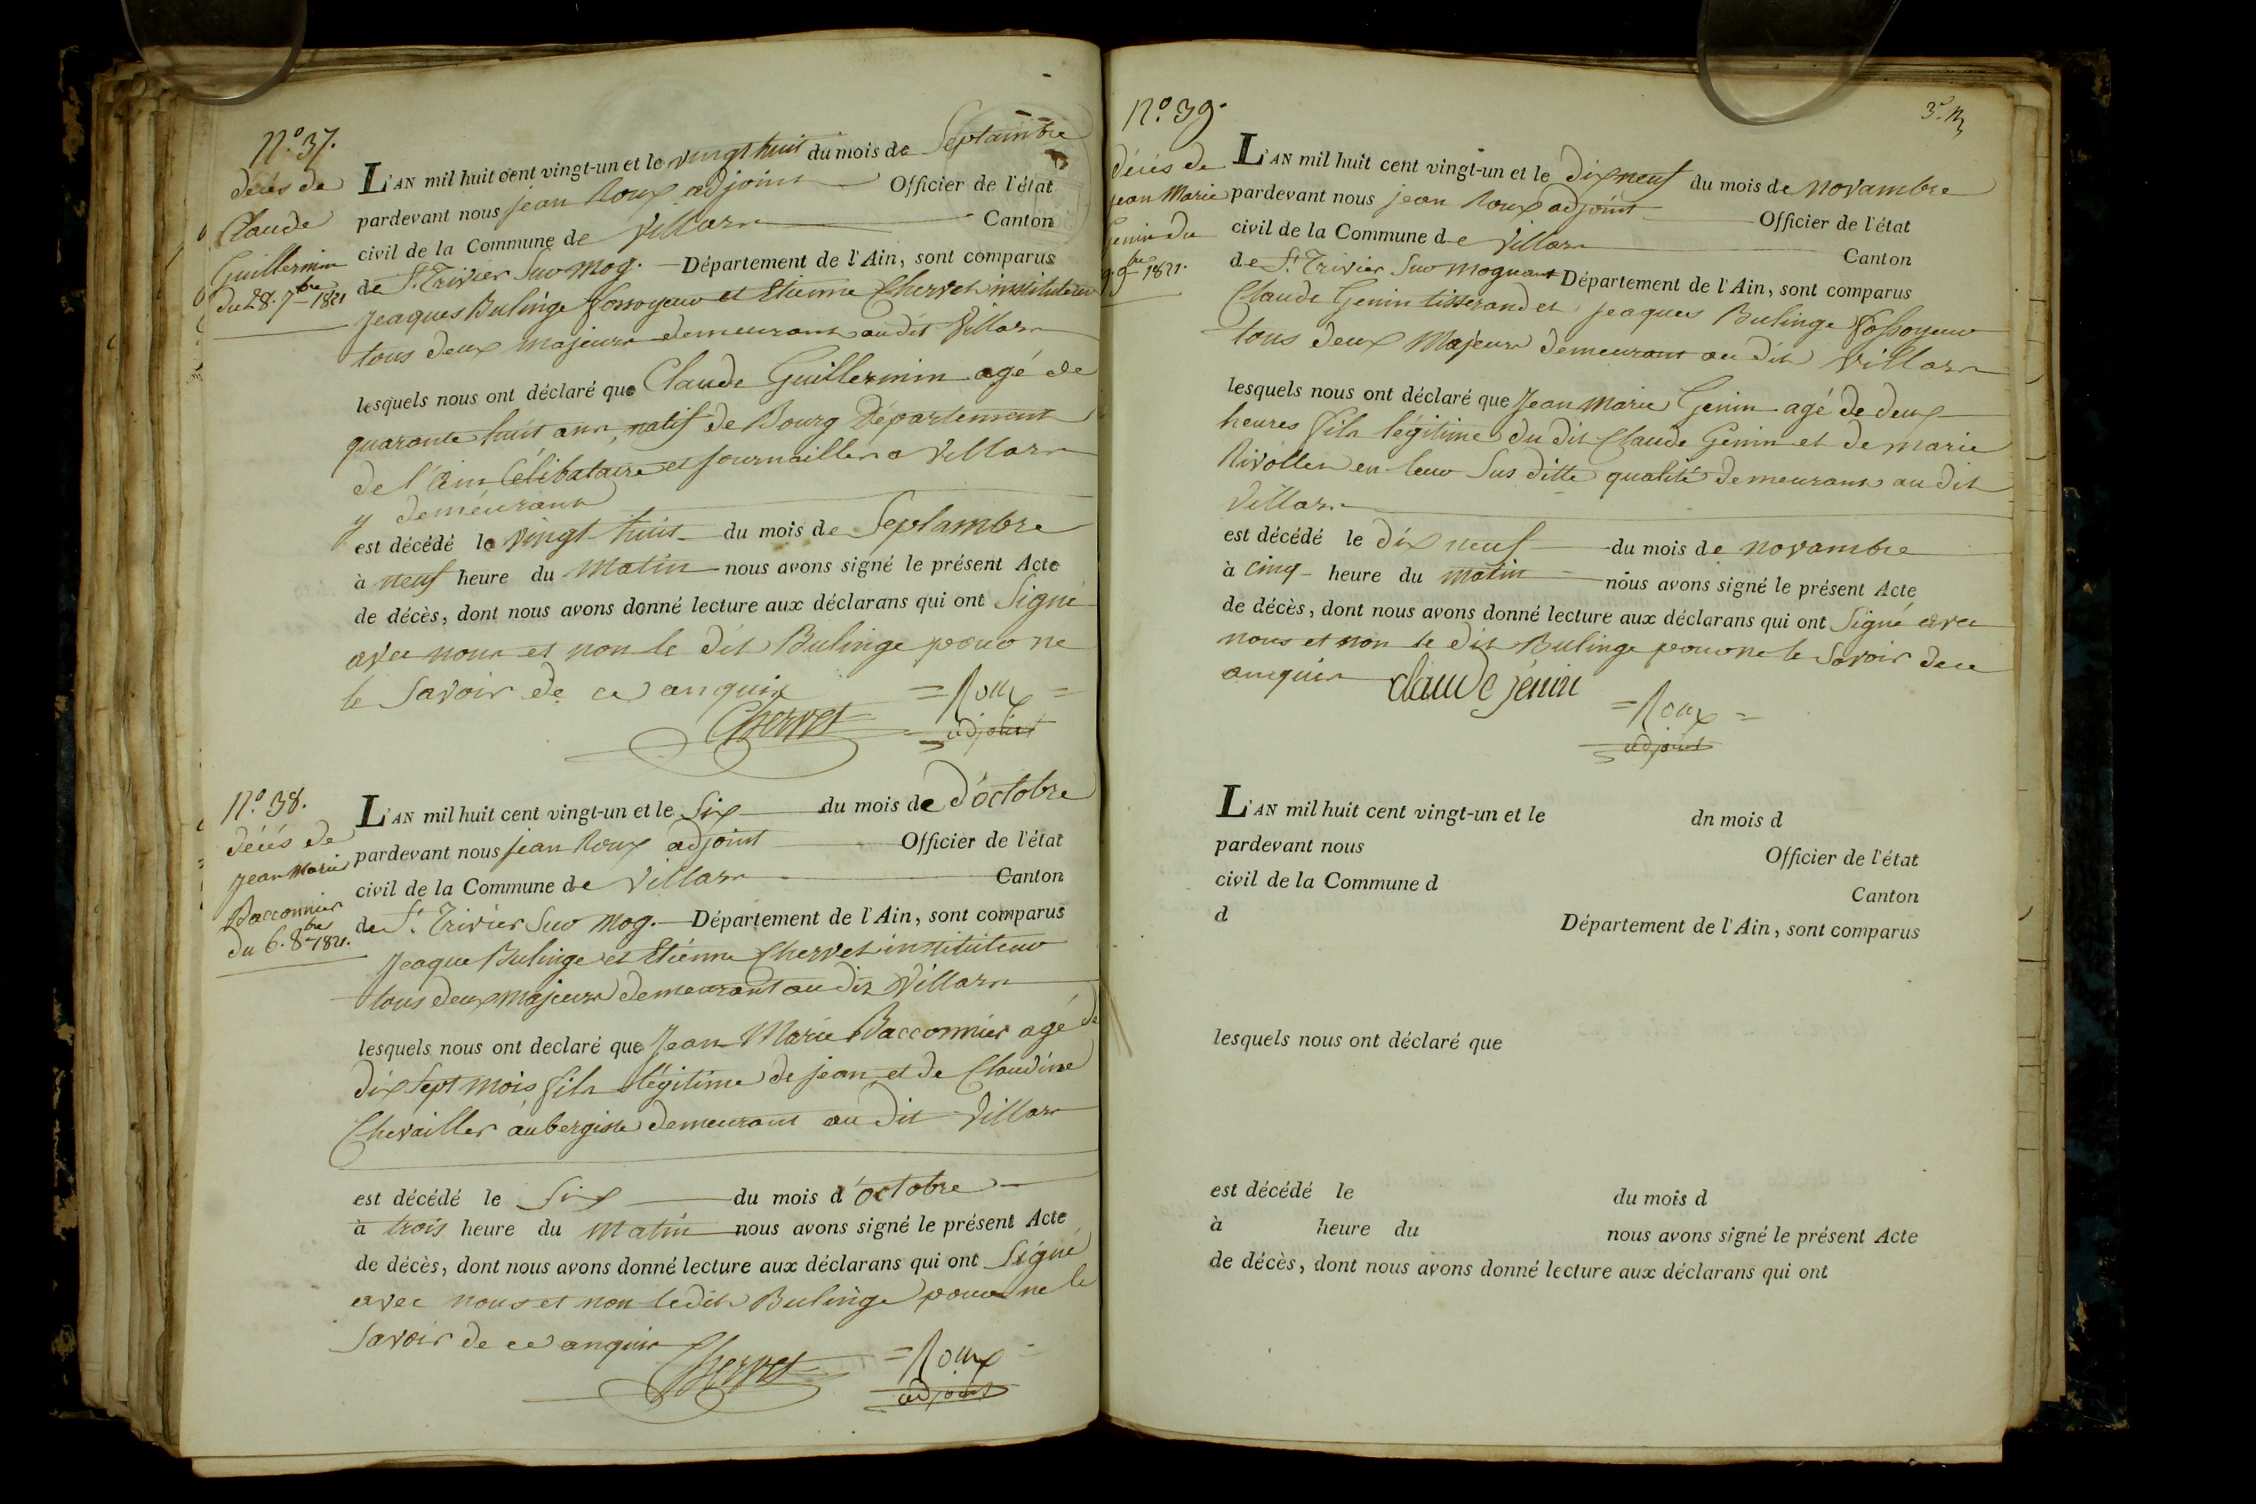 N.º 37.
décés de
Claude
Guillermin
du 28. 7bre 1821
L'AN mil huit cent vingt-un et le vingt huit du mois de Septambre
pardevant nous jean Roux adjoint Officier de l'état
civil de la Commune de Villars Canton
de St. Trivier Sur Mog. Département de l'Ain, sont comparus
Jeaques Bulinge fossoyeur et Etienne Chervet instituteur
tous deux majeurs demeurant audit Villars
lesquels nous ont déclaré que Claude Guillermin agé de
quarante huit ans, natif de Bourg Département
de l'Ain Célibataire et journaillier a Villars
y demeurant
est décédé le vingt huit du mois de Septambre
à neuf heure du Matin nous avons signé le présent Acte
de décès, dont nous avons donné lecture aux déclarans qui ont Signé
avec nous et non le dit Bulinge pour ne
le Savoir de ce anquis
Chervet = Roux =
adjoint
N.º 38.
décés de
Jean Marie
Bacconnier
du 6. 8bre 1821.
L'AN mil huit cent vingt-un et le Six du mois de d'octobre
pardevant nous jean Roux adjoint Officier de l'état
civil de la Commune de Villars Canton
de St. Trivier Sur Mog. Département de l'Ain, sont comparus
Jeaque Bulinge et Etienne Chervet instituteur
tous deux majeurs demeurant au dit Villars
lesquels nous ont declaré que Jean Marie Bacconnier agé de
dix Sept mois, fils légitime de jean et de Claudine
Chevailler aubergiste demeurant au dit Villars
est décédé le Six du mois d'octobre
à trois heure du Matin nous avons signé le présent Acte
de décès, dont nous avons donné lecture aux déclarans qui ont Signé
avec nous et non ledit Bulinge pour ne le
Savoir de ce anquis
Chervet = Roux =
adjoint
N.º 39.
décés de
jean Marie
Genin du
9bre 1821.
L'AN mil huit cent vingt-un et le Dix neuf du mois de novambre
pardevant nous jean Roux adjoint Officier de l'état
civil de la Commune de Villars Canton
de St. Trivier Sur Mognant Département de l'Ain, sont comparus
Claude Genin tisserand et Jeaques Bulinge fossoyeur
tous deux Majeurs demeurant au dit Villars
lesquels nous ont déclaré que Jean Marie Genin agé de deux
heures fils légitime du dit Claude Genin et de marie
Rivollet en leur Sus ditte qualité demeurant au dit
Villars
est décédé le dix neuf du mois de novambre
à cinq heure du matin nous avons signé le présent Acte
de décès, dont nous avons donné lecture aux déclarans qui ont Signé avec
nous et non le dit Bulinge pour ne le Savoir de ce
anquis
claude jenin
= Roux =
adjoint
L'AN mil huit cent vingt-un et le dn mois d
pardevant nous Officier de l'état
civil de la Commune d Canton
d Département de l'Ain, sont comparus
lesquels nous ont déclaré que
est décédé le du mois d
à heure du nous avons signé le présent Acte
de décès, dont nous avons donné lecture aux déclarans qui ont